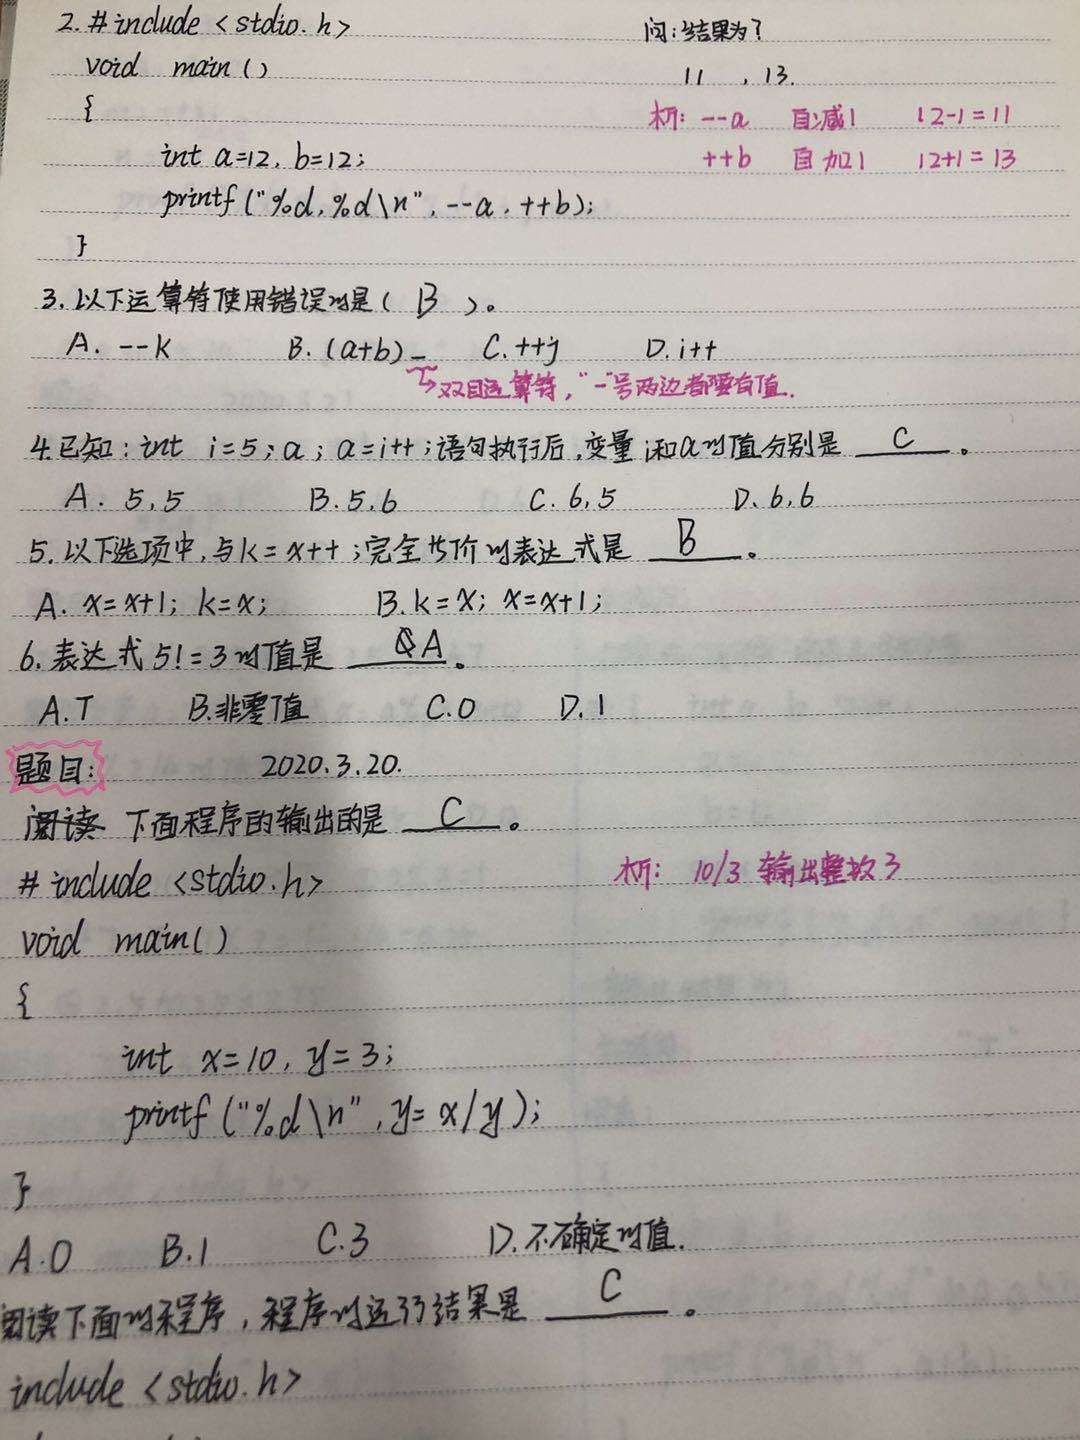 2. #include <stdio.h> 问:结果为?
void main() 11 , 13.
{ 析: --a 自减1 12-1=11
int a=12, b=12; ++b 自加1 12+1=13
printf("%d,%d\n", --a, ++b);
}
3. 以下运算符使用错误的是( B )。
A. --k B. (a+b)- C. ++j D. i++
→双目运算符,"-"号两边都要有值.
4. 已知: int i=5; a; a=i++;语句执行后,变量i和a的值分别是 C 。
A. 5,5 B. 5,6 C. 6,5 D. 6,6
5. 以下选项中,与k=x++;完全等价的表达式是 B 。
A. x=x+1; k=x; B. k=x; x=x+1;
6. 表达式5!=3的值是 A 。
A. T B. 非零值 C. 0 D. 1
题目: 2020.3.20.
阅读 下面程序的输出的是 C 。
#include <stdio.h> 析: 10/3 输出整数3
void main()
{
int x=10, y=3;
printf("%d\n", y=x/y);
}
A. 0 B. 1 C. 3 D. 不确定的值.
阅读下面的程序,程序的运行结果是 C 。
include <stdio.h>